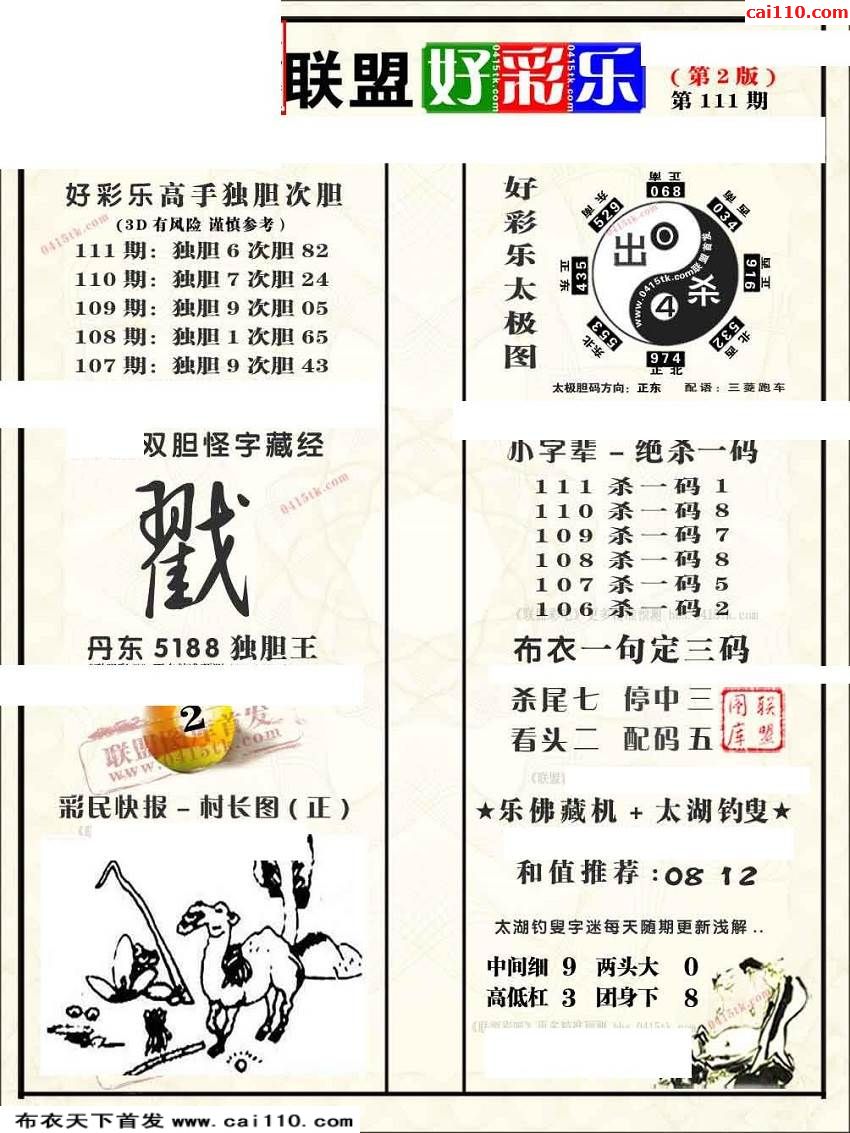 cai110.com
联盟 好彩乐
(第2版)
第111期
好彩乐高手独胆次胆
(3D有风险 谨慎参考)
111期：独胆6次胆82
110期：独胆7次胆24
109期：独胆9次胆05
108期：独胆1次胆65
107期：独胆9次胆43
0415tk.com
双胆怪字藏经
戳
0415tk.com
丹东5188独胆王
2
www.0415tk.com
彩民快报－村长图(正)
好彩乐太极图
正南
068
西南
034
正西
916
西北
532
正北
974
东北
553
正东
435
东南
529
出 0
杀 4
www.0415tk.com联盟首发
太极胆码方向：正东 配语：三菱跑车
小字辈－绝杀一码
111杀一码1
110杀一码8
109杀一码7
108杀一码8
107杀一码5
106杀一码2
布衣一句定三码
杀尾七 停中三
看头二 配码五
联盟图库
《联盟
★乐佛藏机+太湖钓叟★
和值推荐：08 12
太湖钓叟字迷每天随期更新浅解..
中间细 9 两头大 0
高低杠 3 团身下 8
0415tk.com
布衣天下首发 www.cai110.com